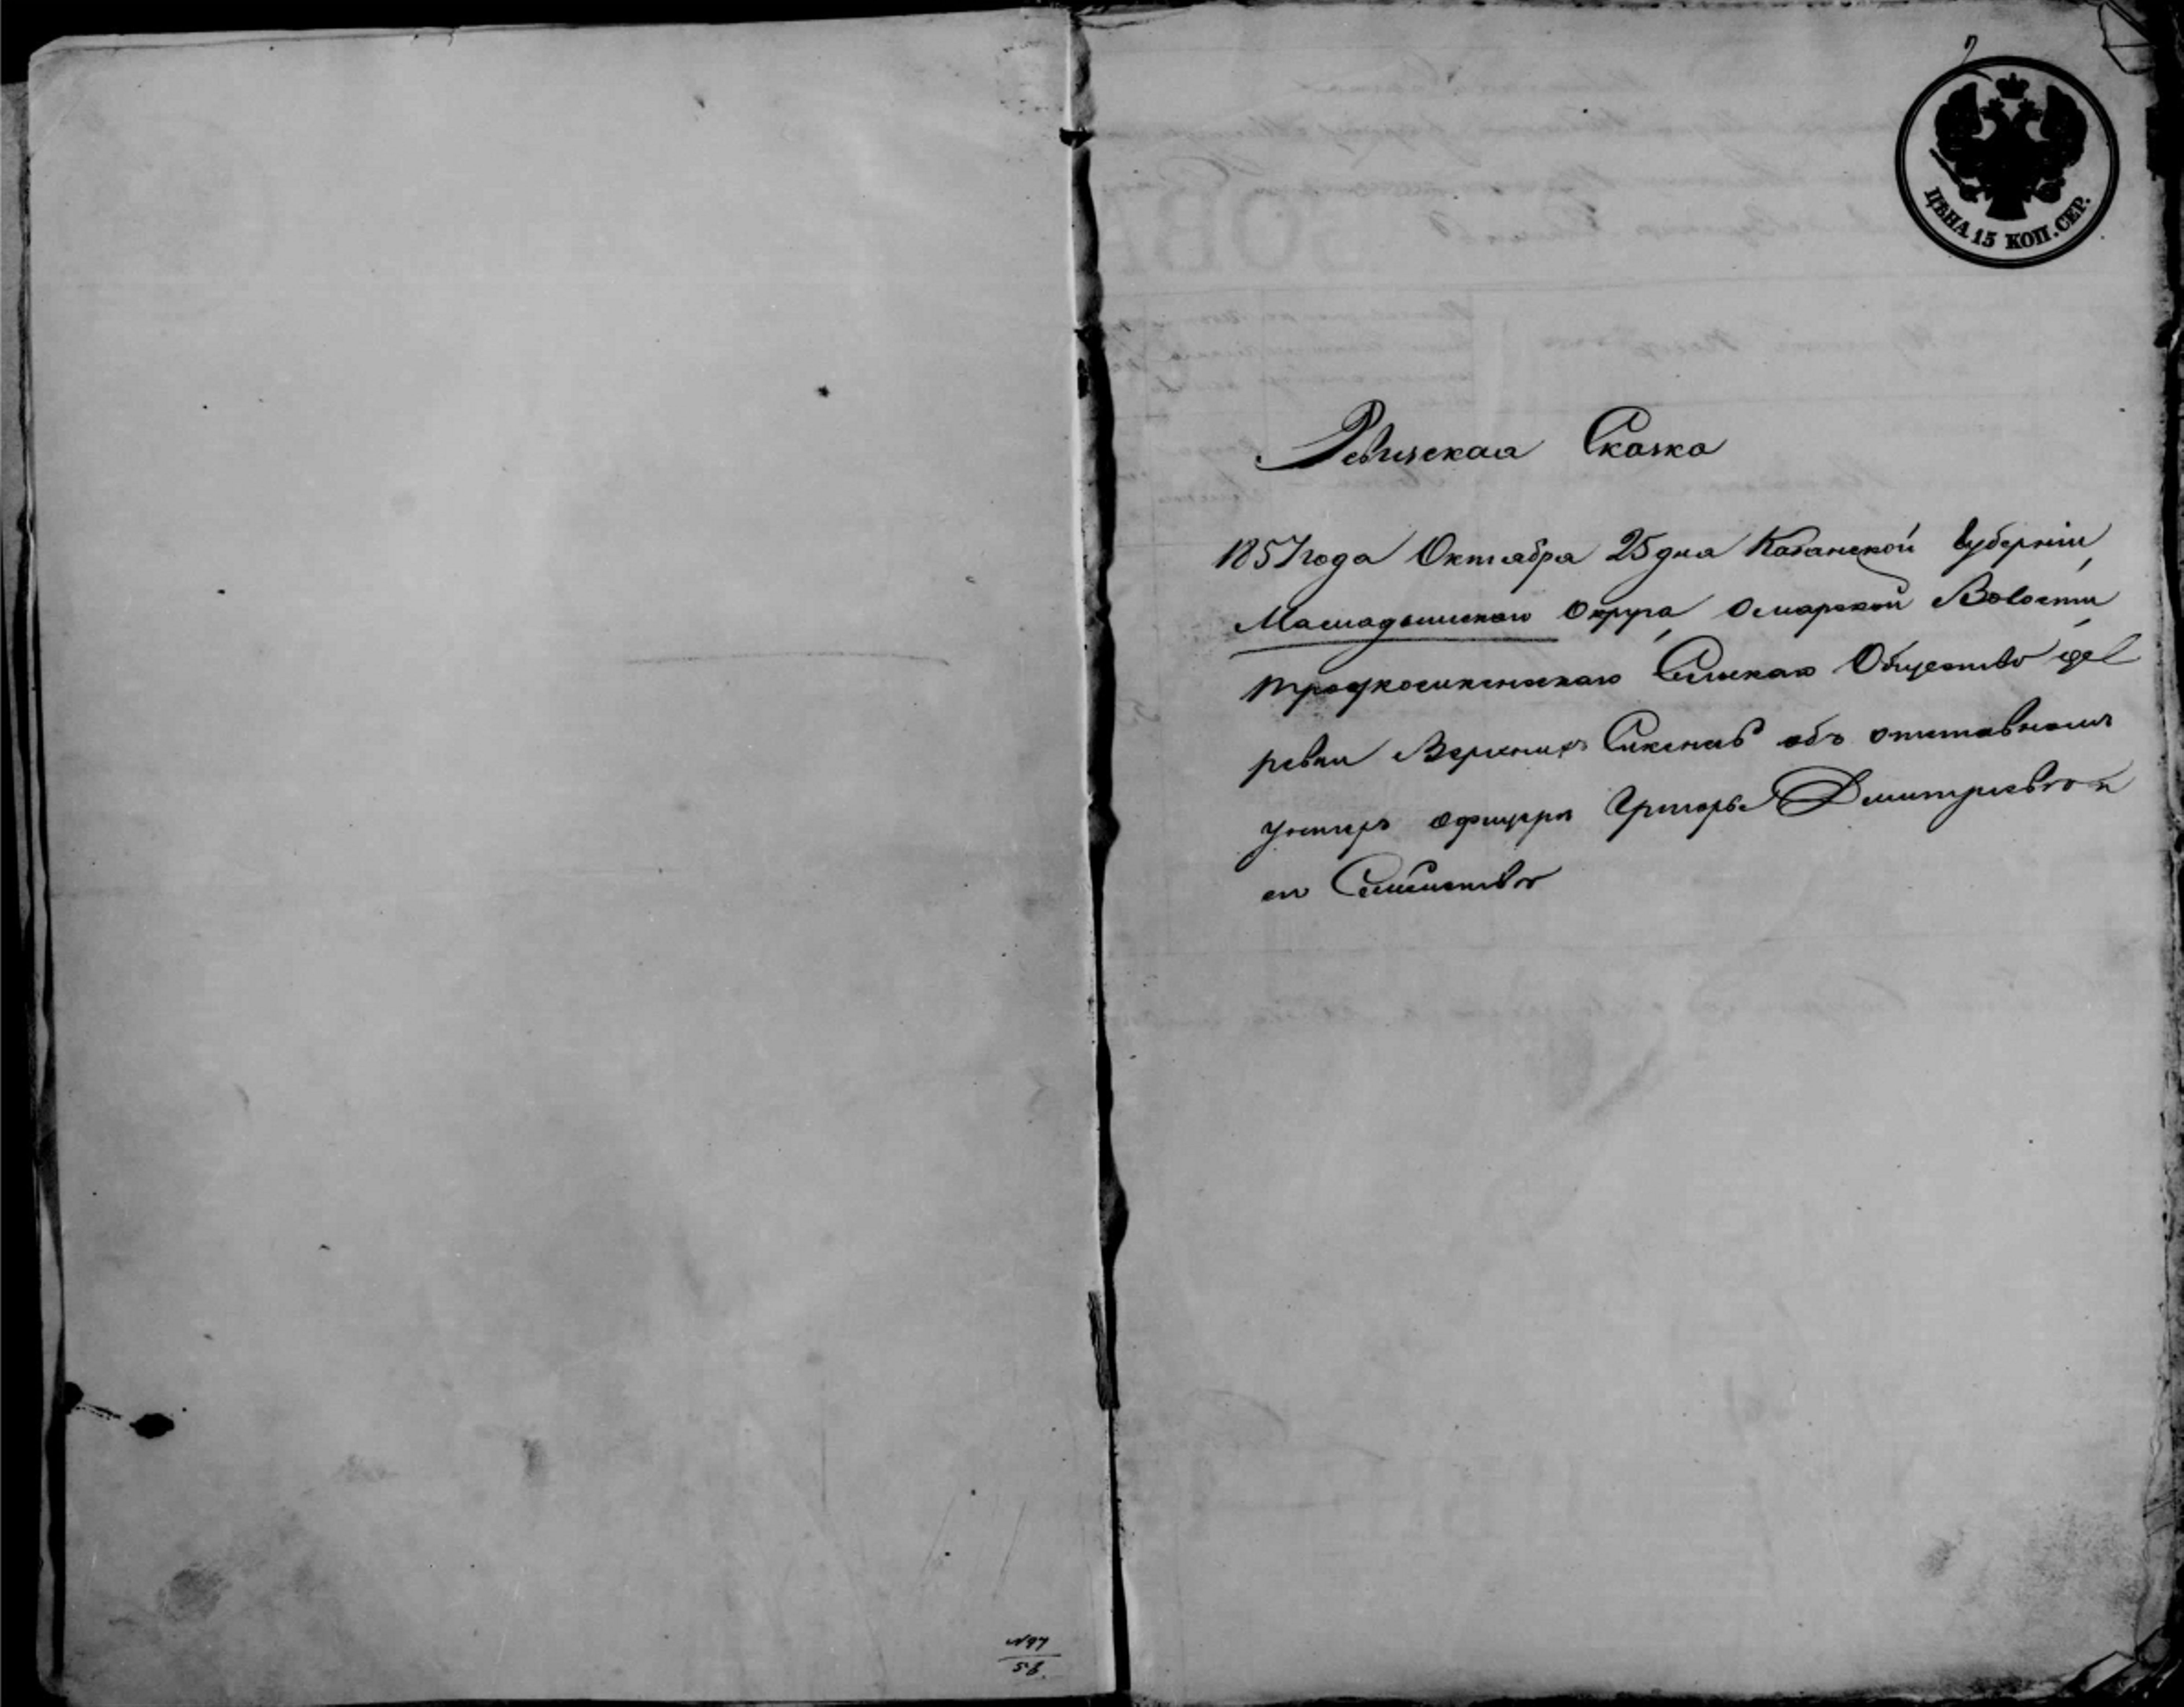 ЦѢНА 15 КОП. СЕР.
Ревизская Сказка
1857 года Октября 25 дня Казанской Губерніи,
Мамадышскаго Округа, Омарской Волости,
Сельскаго Общества де
ревни Верхнихъ Сикенеѣ объ отставномъ
унтеръ офицерѣ Григорье Дмитріевѣ и
его Семействѣ
№97
58.